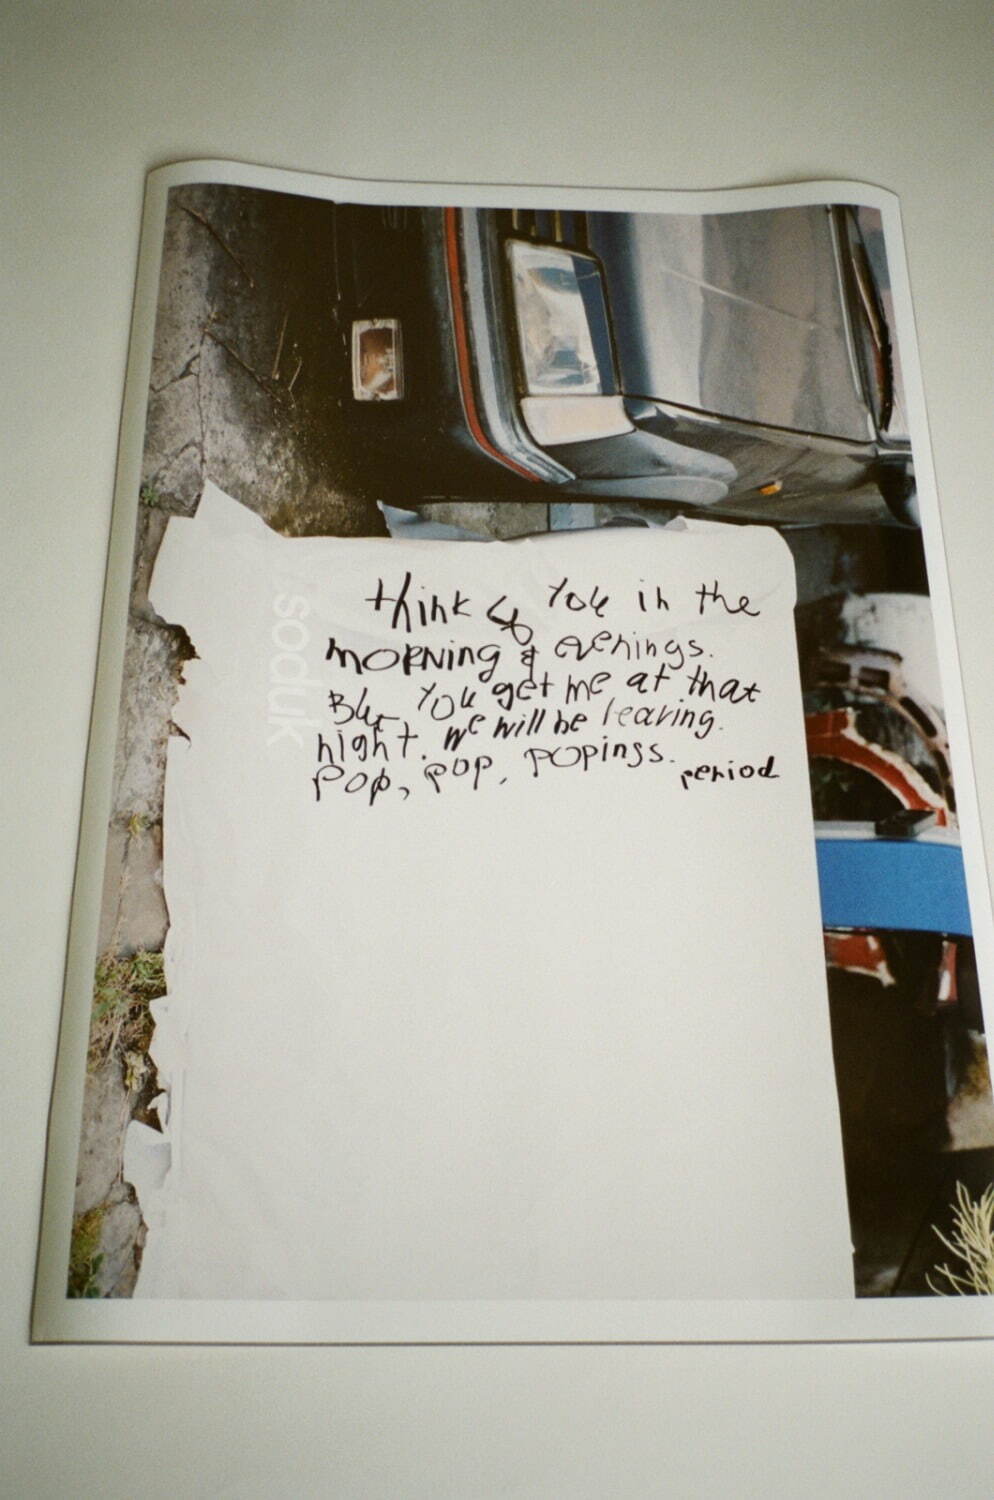 think of You in the
mORNing & evenings.
But You get me at that
night. we will be leaving.
Pop, pop, POpings. period
soduk